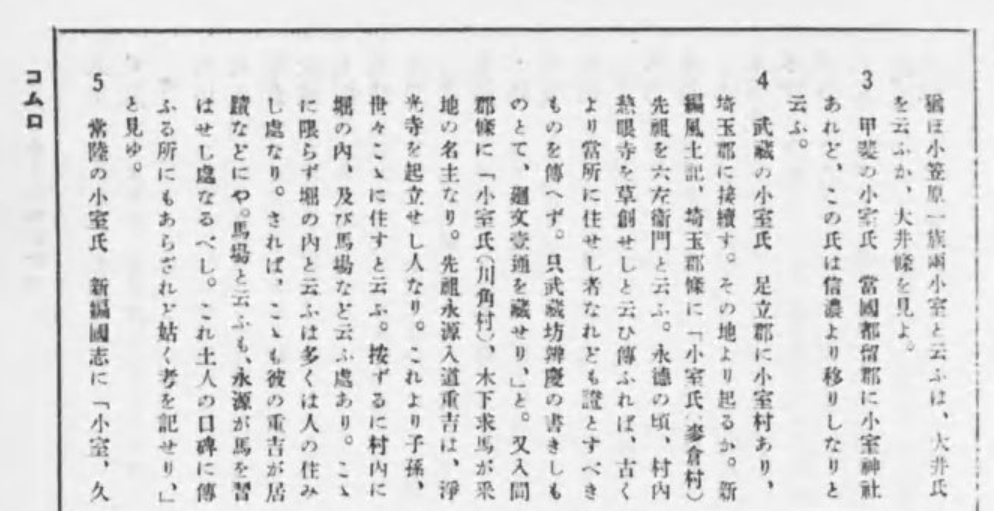 猶ほ小笠原一族兩小室と云ふは、大井氏
を云ふか、大井條を見よ。
3 甲斐の小室氏 當國都留郡に小室神社
あれど、この氏は信濃より移りしなりと
云ふ。
4 武藏の小室氏 足立郡に小室村あり、
埼玉郡に接續す。その地より起るか。新
編風土記、埼玉郡條に「小室氏(麥倉村)
先祖を六左衞門と云ふ。永德の頃、村內
慈眼寺を草創せしと云ひ傳ふれば、古く
より當所に住せし者なれども證とすべき
ものを傳へず。只武藏坊辨慶の書きしも
のとて、廻文壹通を藏せり、」と。又入間
郡條に「小室氏(川角村)、木下求馬が采
地の名主なり。先祖永源入道重吉は、淨
光寺を起立せし人なり。これより子孫、
世々こゝに住すと云ふ。按ずるに村內に
堀の內、及び馬場など云ふ處あり。こゝ
に限らず堀の內と云ふは多くは人の住み
し處なり。されば、こゝも彼の重吉が居
蹟などにや。馬場と云ふも、永源が馬を習
はせし處なるべし。これ土人の口碑に傳
ふる所にもあらざれど姑く考を記せり、」
と見ゆ。
5 常陸の小室氏 新編國志に「小室、久
コムロ